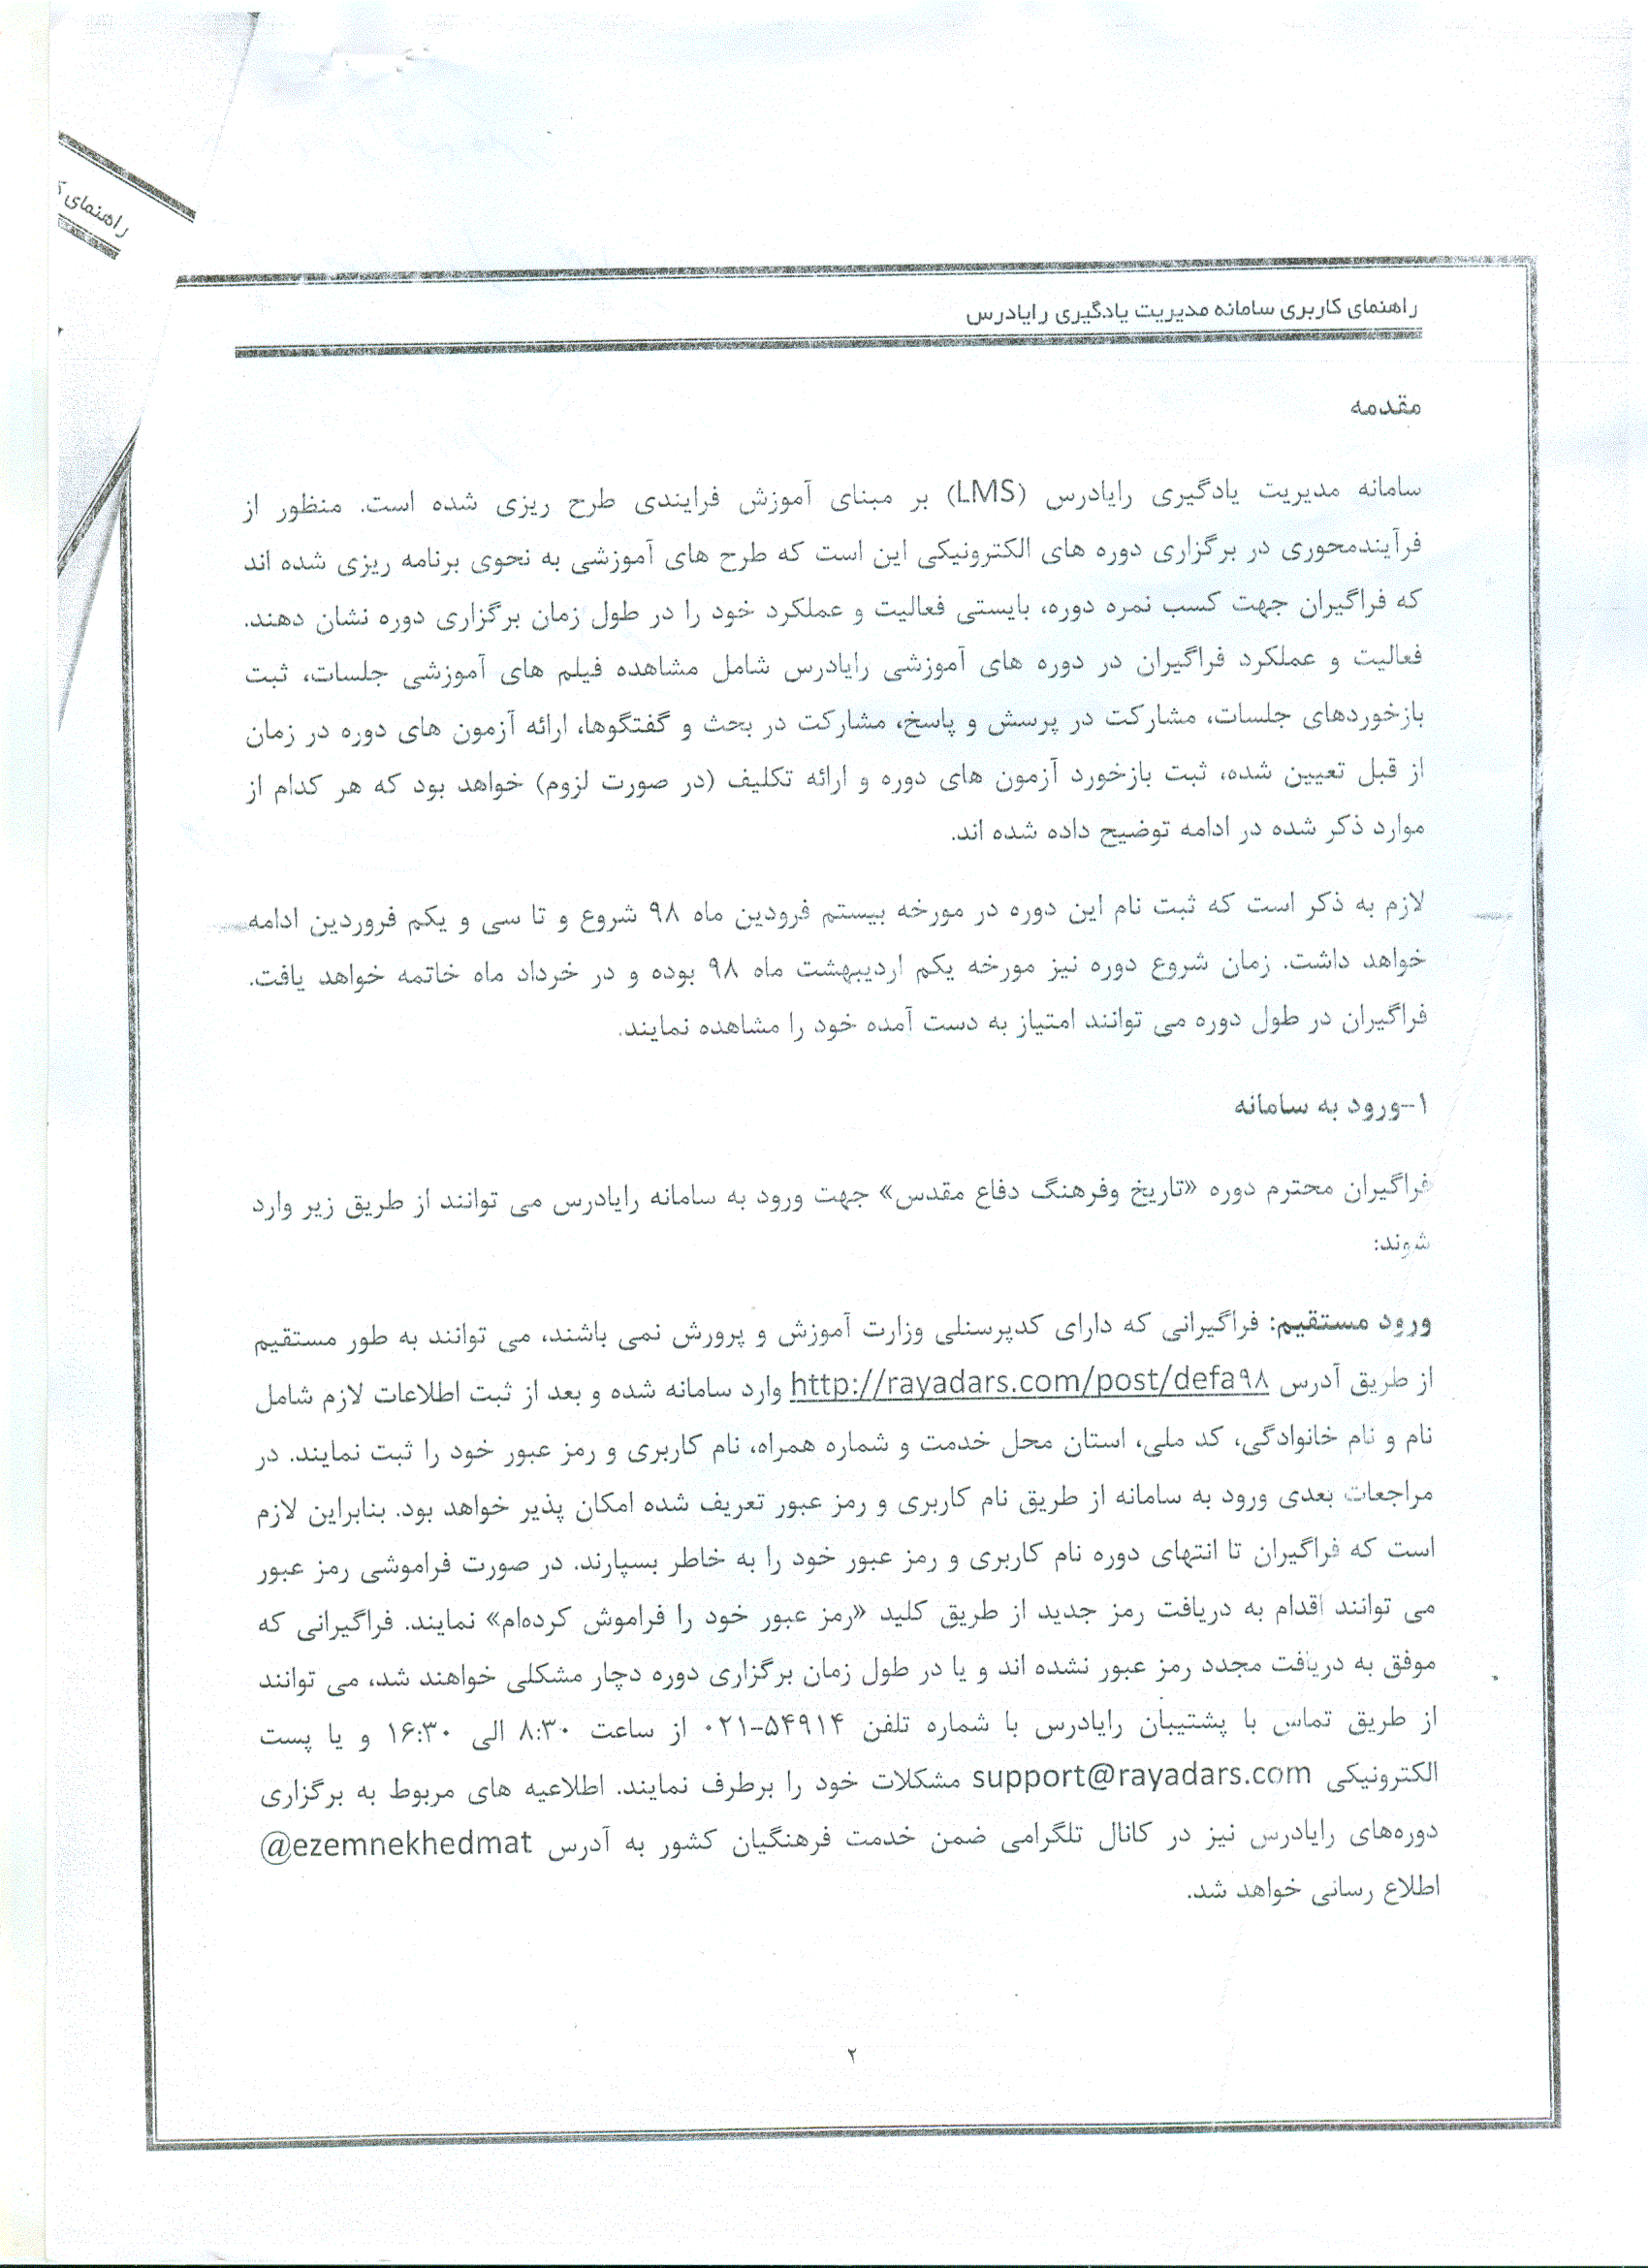 راهنمای
راهنمای کاربری سامانه مدیریت یادگیری رایادرس
مقدمه
سامانه مدیریت یادگیری رایادرس (LMS) بر مبنای آموزش فرایندی طرح ریزی شده است. منظور از
فرآیندمحوری در برگزاری دوره های الکترونیکی این است که طرح های آموزشی به نحوی برنامه ریزی شده اند
که فراگیران جهت کسب نمره دوره، بایستی فعالیت و عملکرد خود را در طول زمان برگزاری دوره نشان دهند.
فعالیت و عملکرد فراگیران در دوره های آموزشی رایادرس شامل مشاهده فیلم های آموزشی جلسات، ثبت
بازخوردهای جلسات، مشارکت در پرسش و پاسخ، مشارکت در بحث و گفتگوها، ارائه آزمون های دوره در زمان
از قبل تعیین شده، ثبت بازخورد آزمون های دوره و ارائه تکلیف (در صورت لزوم) خواهد بود که هر کدام از
موارد ذکر شده در ادامه توضیح داده شده اند.
لازم به ذکر است که ثبت نام این دوره در مورخه بیستم فرودین ماه ۹۸ شروع و تا سی و یکم فروردین ادامه
خواهد داشت. زمان شروع دوره نیز مورخه یکم اردیبهشت ماه ۹۸ بوده و در خرداد ماه خاتمه خواهد یافت.
فراگیران در طول دوره می توانند امتیاز به دست آمده خود را مشاهده نمایند.
۱-ورود به سامانه
فراگیران محترم دوره «تاریخ وفرهنگ دفاع مقدس» جهت ورود به سامانه رایادرس می توانند از طریق زیر وارد
شوند:
ورود مستقیم: فراگیرانی که دارای کدپرسنلی وزارت آموزش و پرورش نمی باشند، می توانند به طور مستقیم
از طریق آدرس http://rayadars.com/post/defa۹۸ وارد سامانه شده و بعد از ثبت اطلاعات لازم شامل
نام و نام خانوادگی، کد ملی، استان محل خدمت و شماره همراه، نام کاربری و رمز عبور خود را ثبت نمایند. در
مراجعات بعدی ورود به سامانه از طریق نام کاربری و رمز عبور تعریف شده امکان پذیر خواهد بود. بنابراین لازم
است که فراگیران تا انتهای دوره نام کاربری و رمز عبور خود را به خاطر بسپارند. در صورت فراموشی رمز عبور
می توانند اقدام به دریافت رمز جدید از طریق کلید «رمز عبور خود را فراموش کرده‌ام» نمایند. فراگیرانی که
موفق به دریافت مجدد رمز عبور نشده اند و یا در طول زمان برگزاری دوره دچار مشکلی خواهند شد، می توانند
از طریق تماس با پشتیبان رایادرس با شماره تلفن ۵۴۹۱۴-۰۲۱ از ساعت ۸:۳۰ الی ۱۶:۳۰ و یا پست
الکترونیکی support@rayadars.com مشکلات خود را برطرف نمایند. اطلاعیه های مربوط به برگزاری
دوره‌های رایادرس نیز در کانال تلگرامی ضمن خدمت فرهنگیان کشور به آدرس @ezemnekhedmat
اطلاع رسانی خواهد شد.
۲